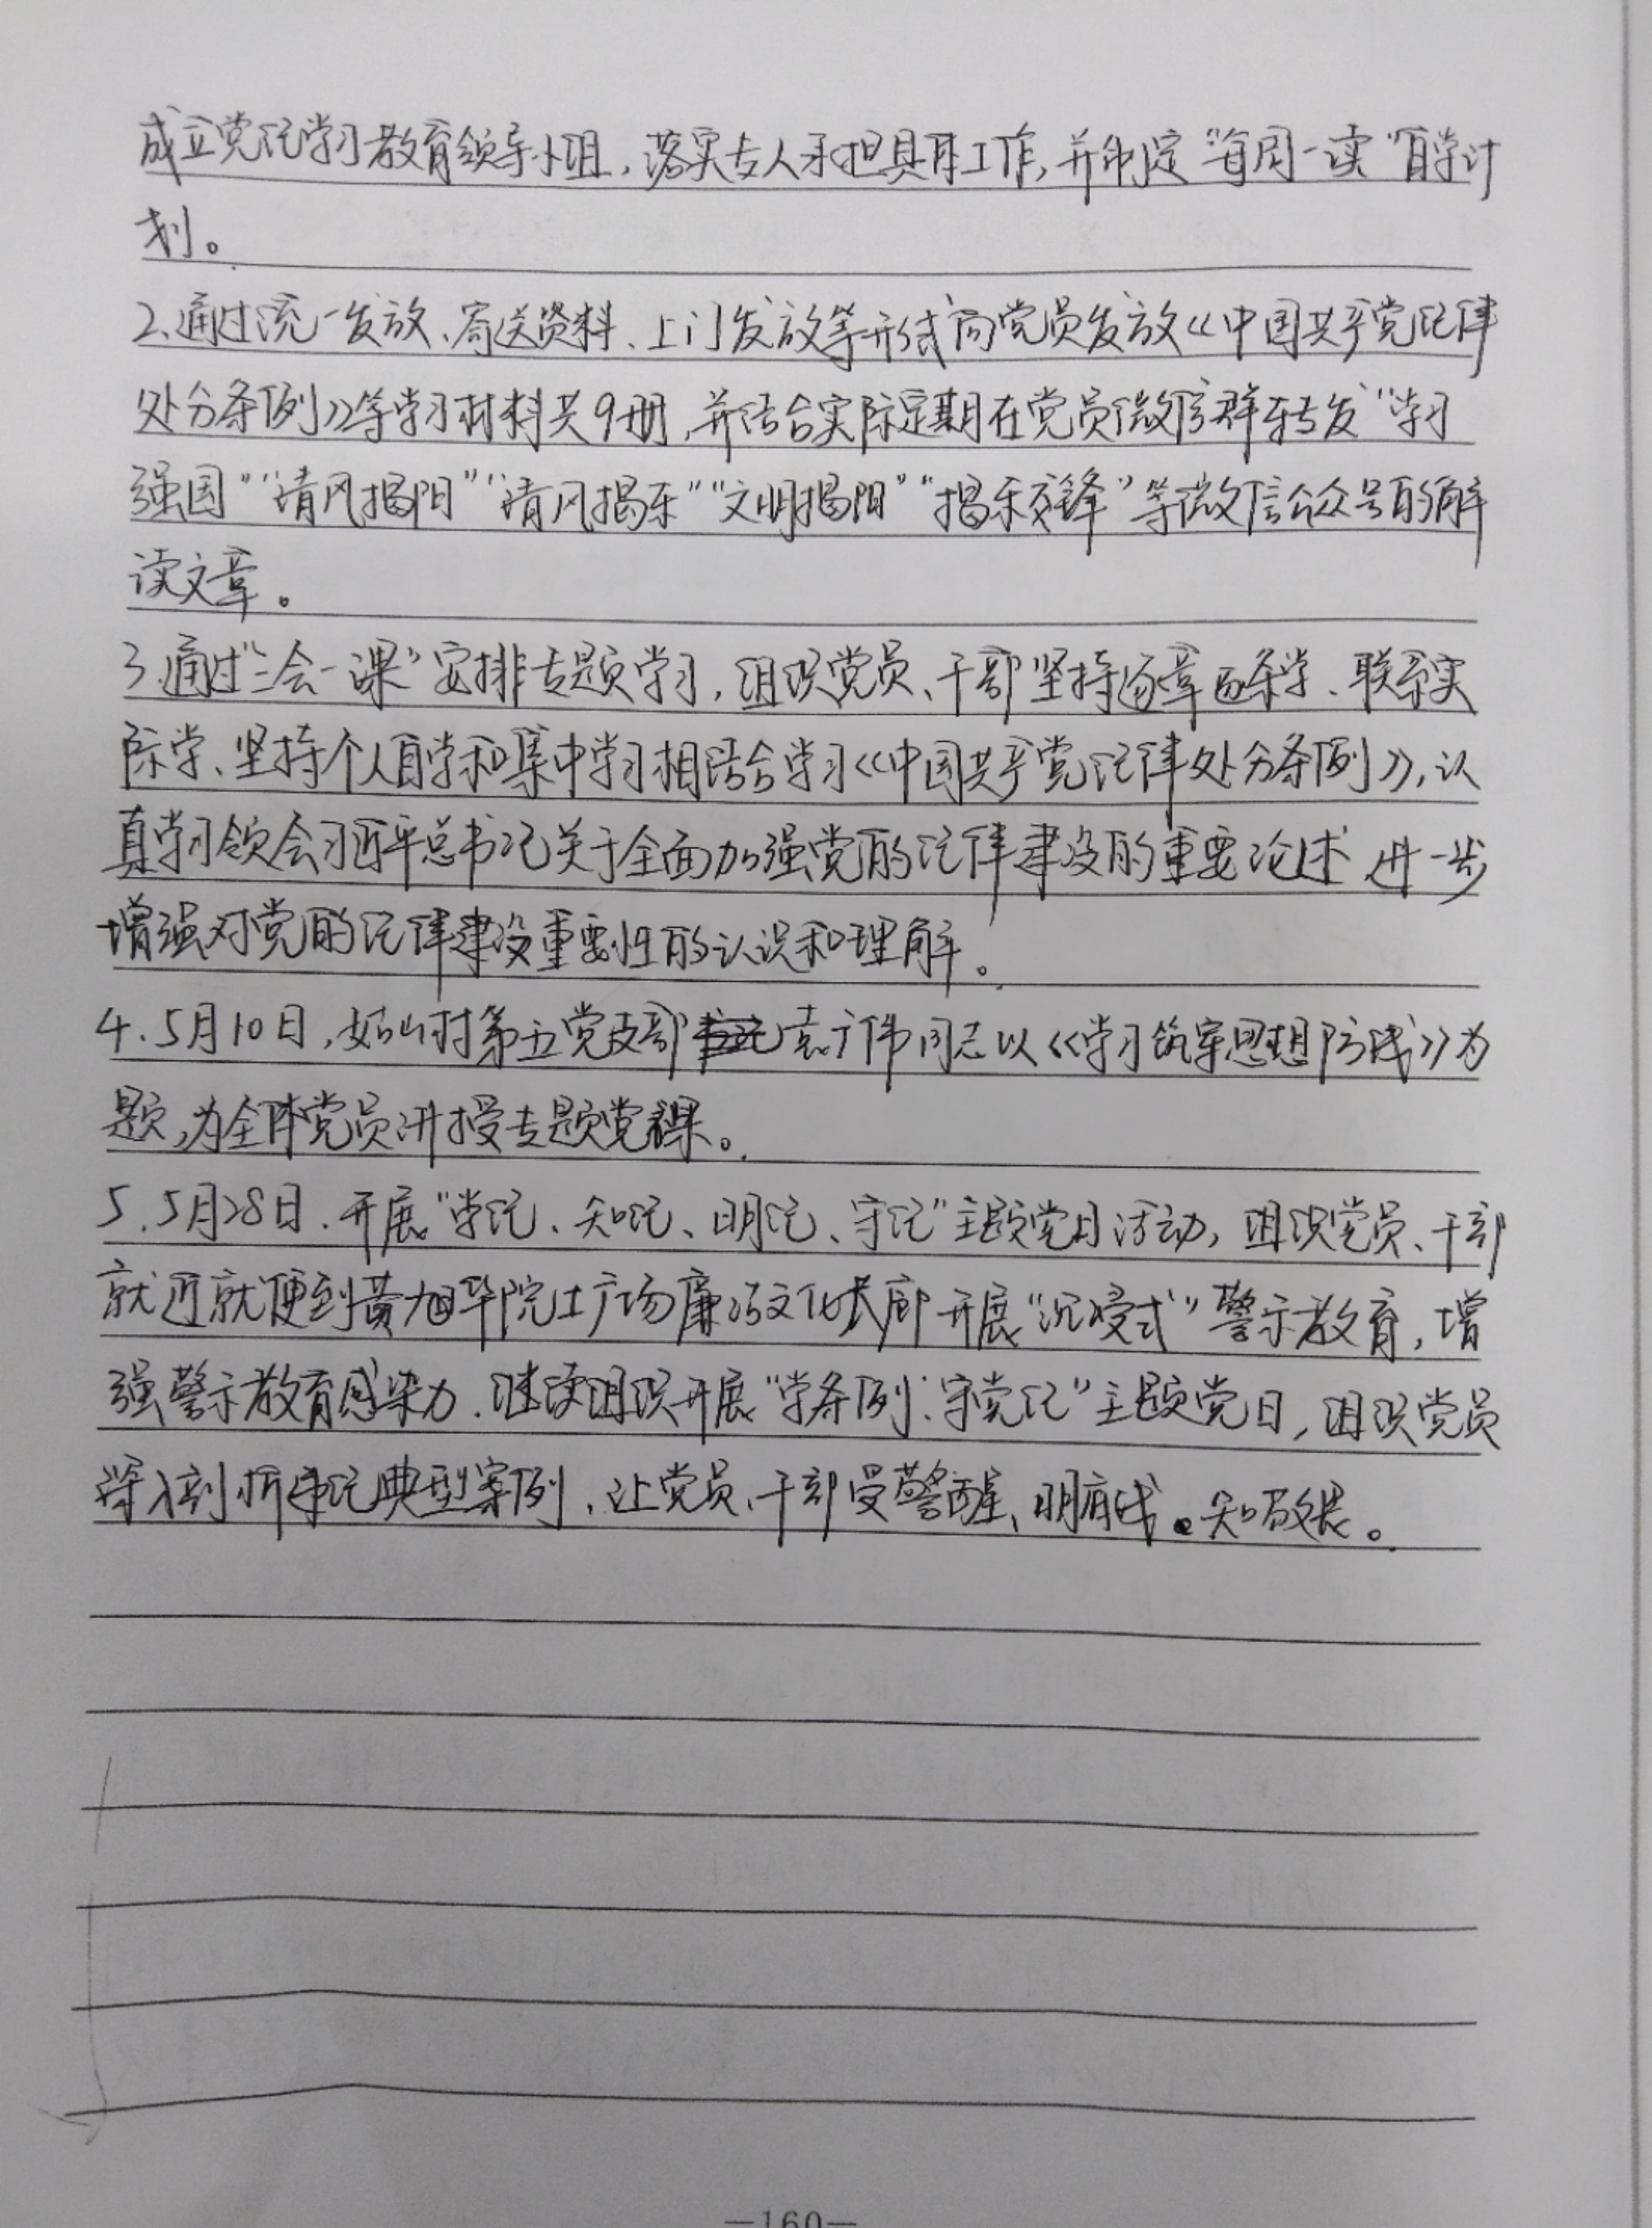 成立党纪学习教育领导小组，落实专人承担具体工作，并制定“每周一读”自学计
划。
2.通过统一发放、寄送资料、上门发放等形式向党员发放《中国共产党纪律
处分条例》等学习材料共9册，并结合实际定期在党员微信群转发“学习
强国”“清风揭阳”“清风揭东”“文明揭阳”“揭东先锋”等微信公众号的解
读文章。
3.通过“三会一课”安排专题学习，组织党员、干部坚持逐章逐条学、联系实
际学、坚持个人自学和集中学习相结合学习《中国共产党纪律处分条例》，认
真学习领会习近平总书记关于全面加强党的纪律建设的重要论述 进一步
增强对党的纪律建设重要性的认识和理解。
4.5月10日，村第五党支部袁广伟同志以《学习筑牢思想防线》为
题，为全体党员讲授专题党课。
5.5月28日、开展“学纪、知纪、明纪、守纪”主题党日活动，组织党员、干部
就近就便到黄旭华院士广场廉洁文化长廊开展“沉浸式”警示教育，增
强警示教育感染力、继续组织开展“学条例、守党纪”主题党日，组织党员
深入剖析违纪典型案例、让党员、干部受警醒、明底线、知敬畏。
—160—